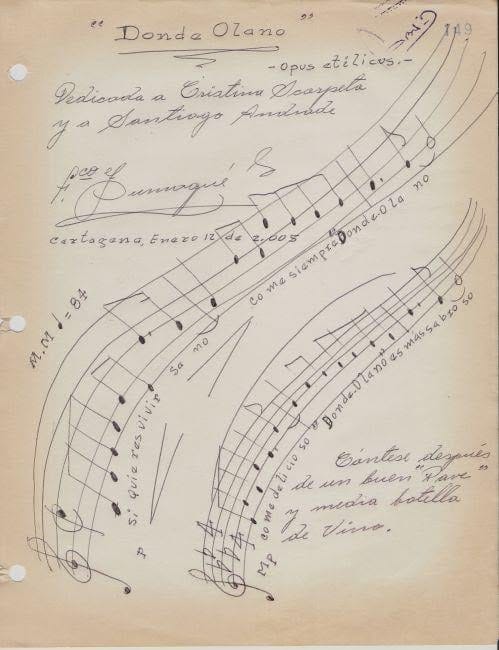 149
"Donde Olano"
-opus etílicus.-
Dedicada a Cristina Scarpeta
y a Santiago Andrade
Cartagena, Enero 12 de 2.005
M.M ♩ = 84
P
Si quieres vivir sano
Come siempre "Donde Olanó
Mp
come delicioso
"Donde Olanó" es más sabroso
Cántese después
de un buen "Pave"
y media botella
de Vino.